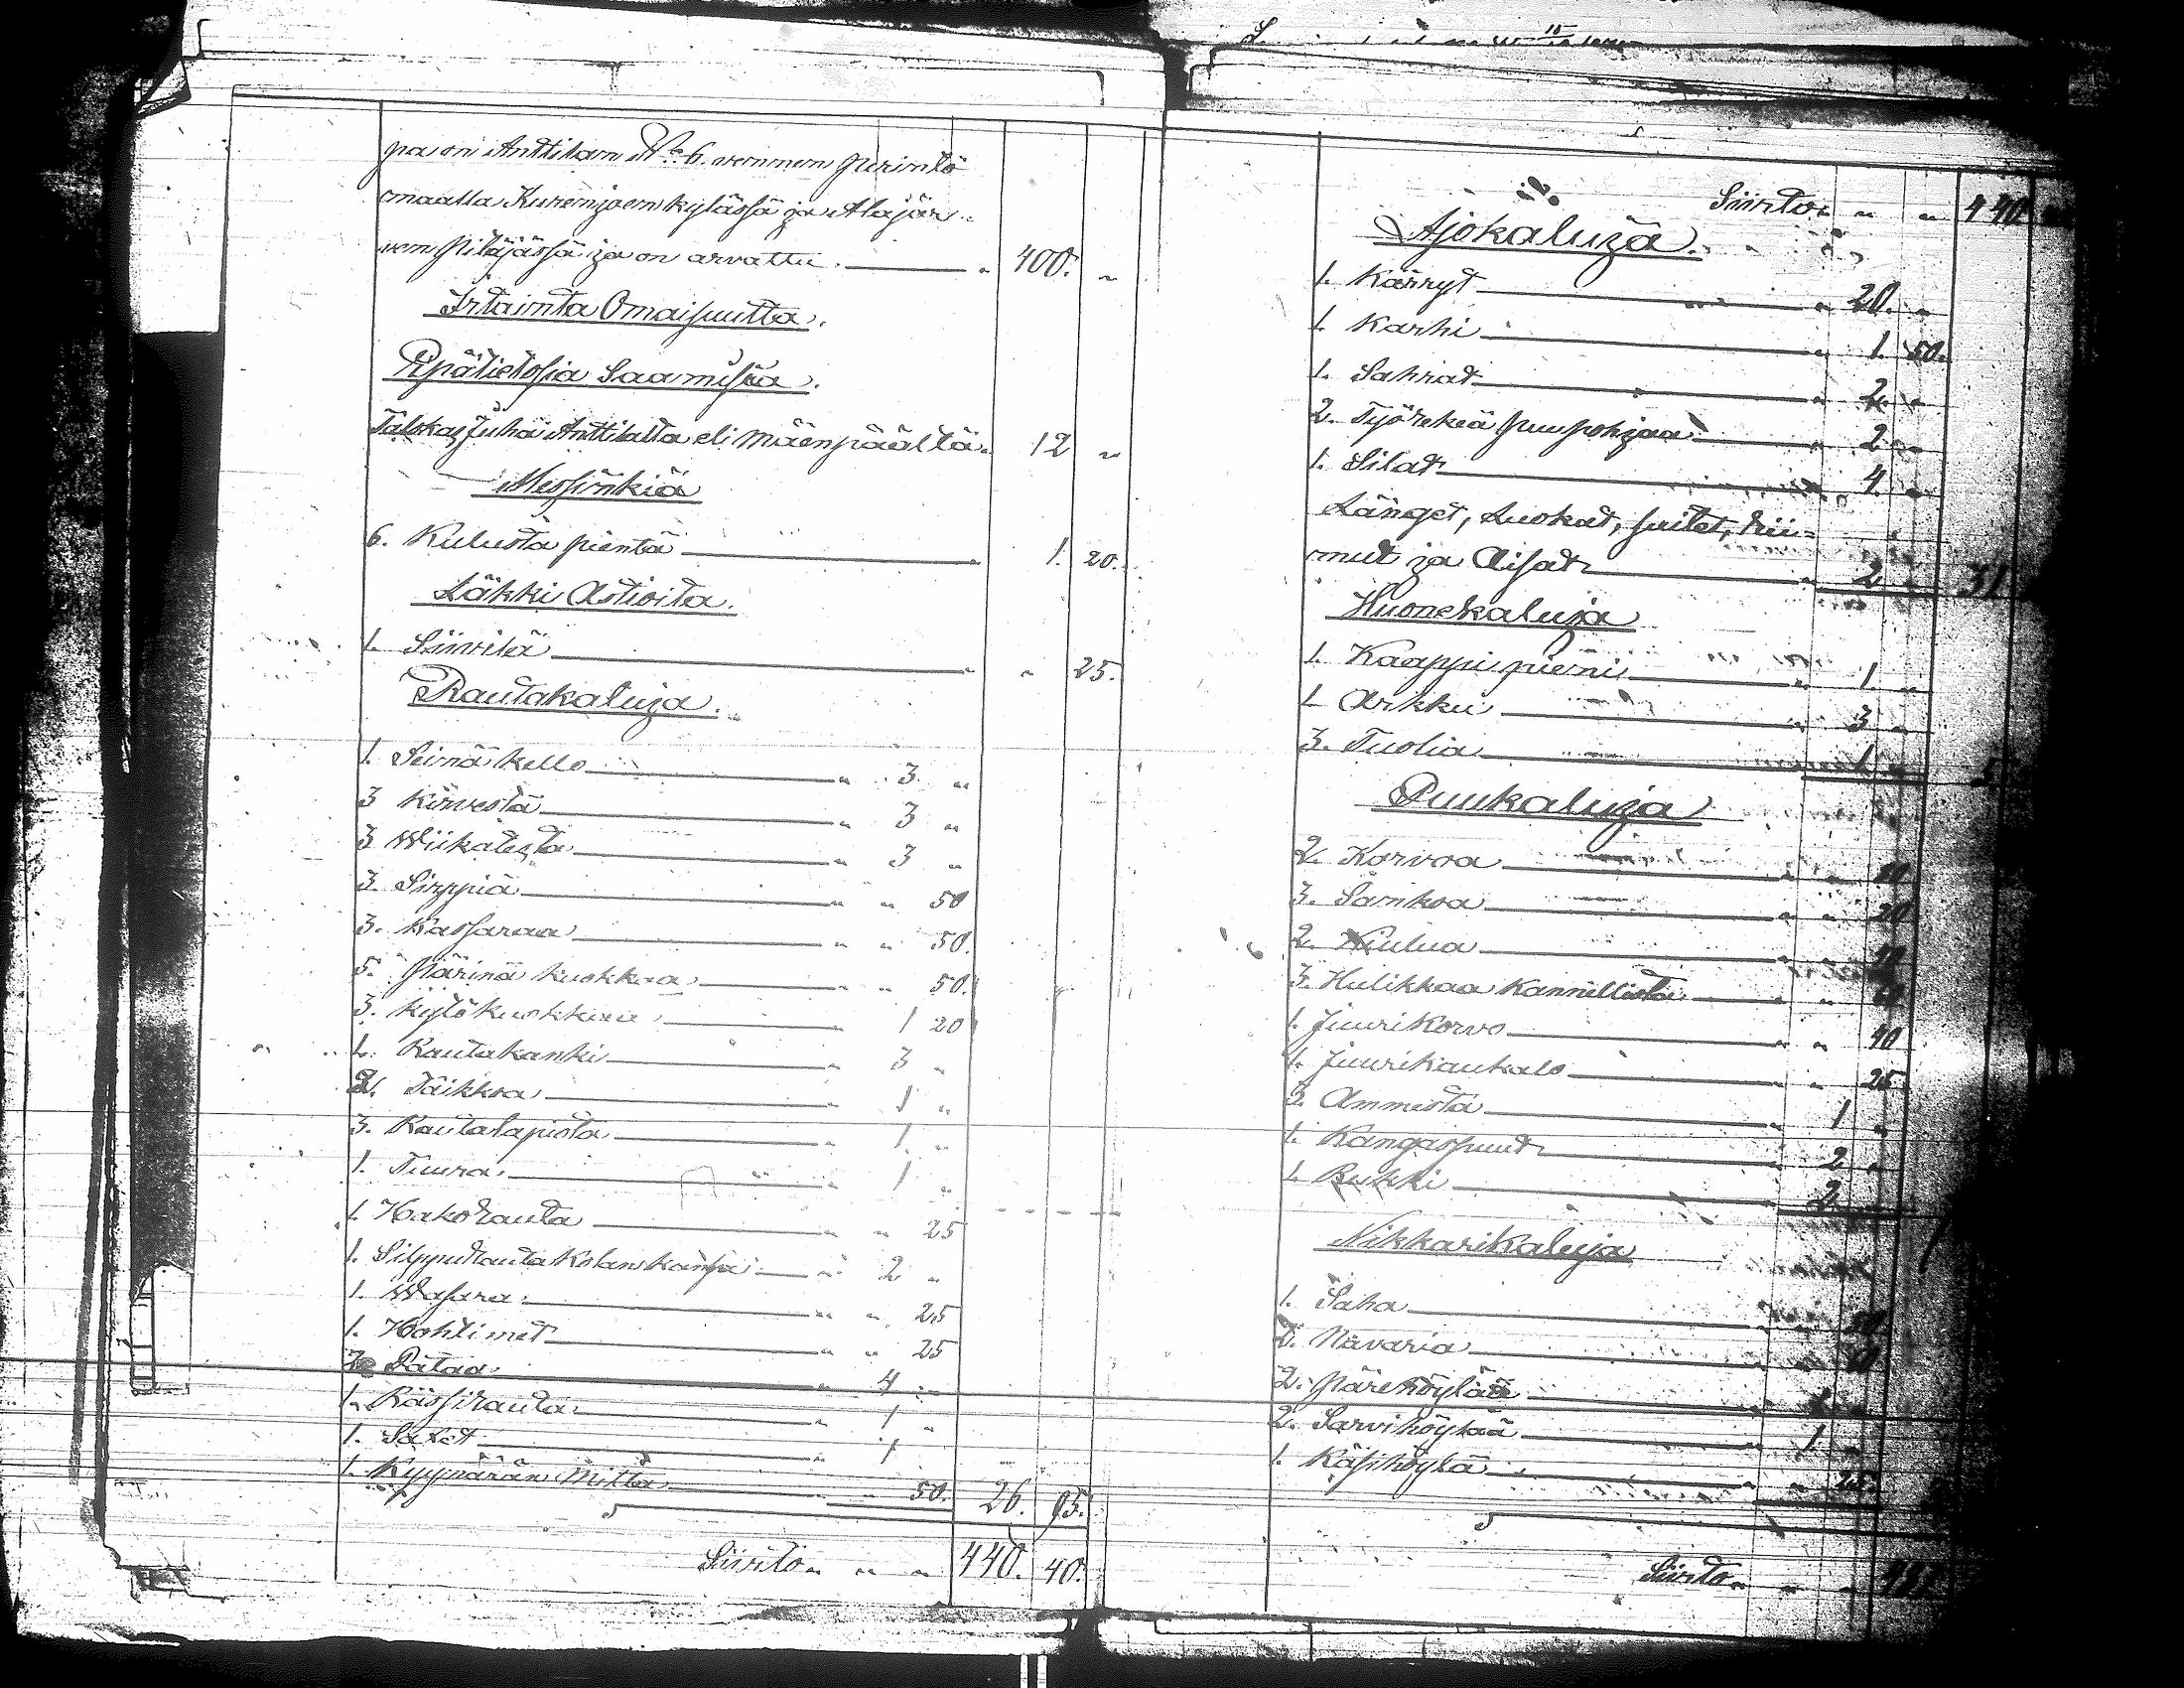 pa on Anttilan No 6. wennen perintö
maalla Kurenjoen kylässä ja Alajär-
ven pitäjässä ja on arvattu. " 400. "
Irtainta Omaisuutta.
Epätietosia Saamisia.
Talokas Juha Anttilalta eli Mäenpäältä. 12 "
Messinkiä
6. Kulusta pientä 1. 20.
Läkki Astioita.
1. Siivilä " " 25.
Rautakaluja.
1. Seinä kello " 3 "
3 Kirvestä " 3 "
3 Wiikatesta " 3 "
3. Sirppiä " " 50
3. Kassaraa " " 50.
5. Närinä kuokkaa " " 50.
3. Kytökuokkaa " 1 20
1. Rautakanki " 3 "
2. Taikkoa " 1 "
3. Rautalapiota " 1 "
1. Tuura " 1 "
1. Hakorauta " " 25
1. Silppurauta Kolan kansa " 2 "
1. Wasara " " 25
1. Hohtimet " " 25
3 Pataa " 4 "
1. Rässirauta " 1 "
1. Sakset " 1
1. Kyynärän Mitta " " 50. 26. 95.
Siirto " " " 440. 40.
Siirto " " 440
Ajokaluja.
1. Kärryt " 20. "
1. Karhi " 1. 50.
1. Sahrat " 2. "
2. Työrekeä puupohjaa " 2 "
1. Silat " 4. "
Länget, Luokat, suitet, rii-
mut ja Aisat " 2 " 31
Huonekaluja
1. Kaappi pieni " 1. "
1 Arkku " 3 "
3. Tuolia 1 " 5
Puukaluja
2. Korvoa " "
3. Sankoa " " 20
2. Kiulua " "
3. Hulikkaa Kannellista " "
1. Juurikorvo " " 40
1. Juurikaukalo " " 25
3. Ammista " 1 "
1. Kangaspuut " 2 "
1. Rukki 2
Nikkarikaluja
1. Saha " 50.
Navaria " "
2. Närehöylää
2. Sarvihöylää " 1 "
1. Käsihöylä " " 25.
Siirto " " "